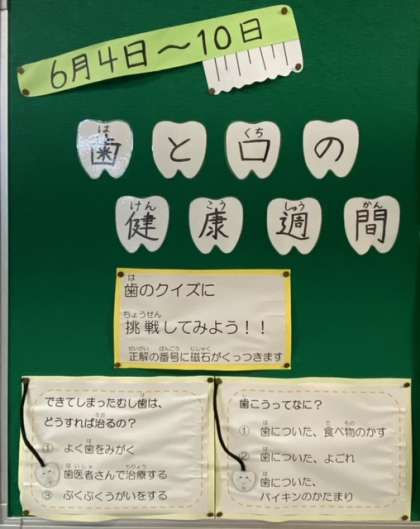 6月4日～10日
歯と口の
健康週間
歯のクイズに
挑戦してみよう！！
正解の番号に磁石がくっつきます
できてしまったむし歯は、
どうすれば治るの？
① よく歯をみがく
歯医者さんで治療する
③ ぶくぶくうがいをする
歯こうってなに？
① 歯についた、食べ物のかす
② 歯についた、よごれ
歯についた、
バイキンのかたまり